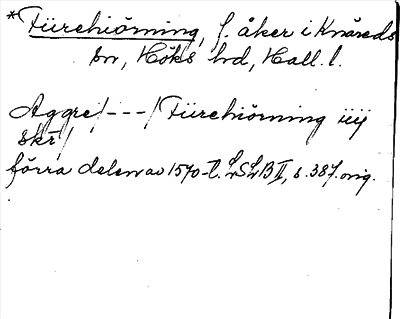 *Tiirehiörning, f. åker i Knäreds
sn, Höks hd, Hall. l.
Aggre/---/Tiirehiörning iiij
skr/
förra delen av 1570-t. LSLB II, s. 387. orig.